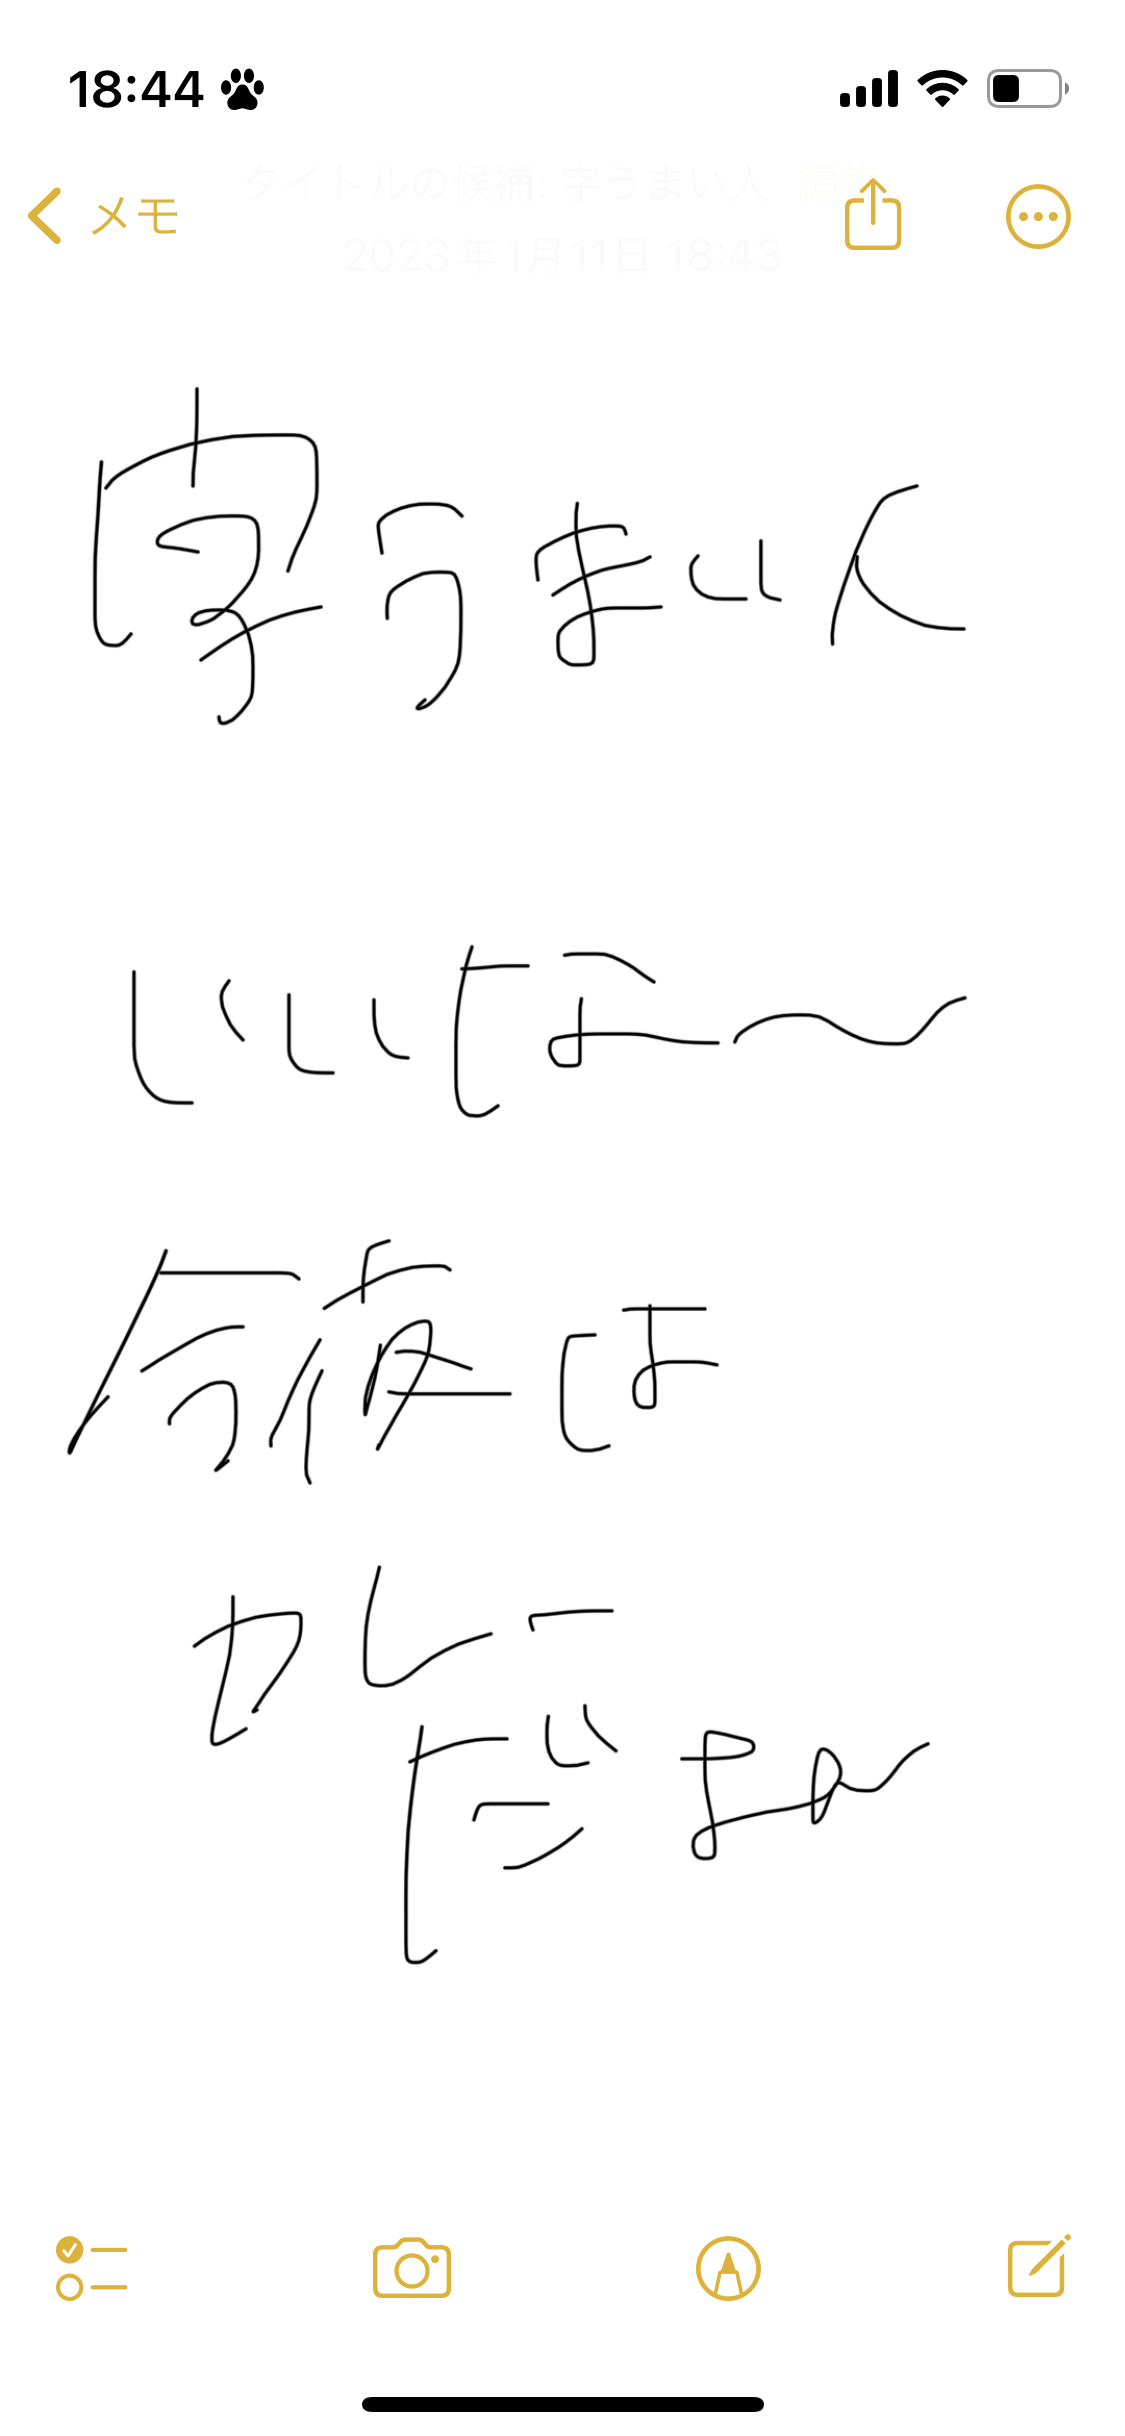 18:44
メモ
タイトルの候補: 字うまい人 編集
2023年1月11日 18:43
字うまい人
いいな〜
今夜は
カレー
だよね〜